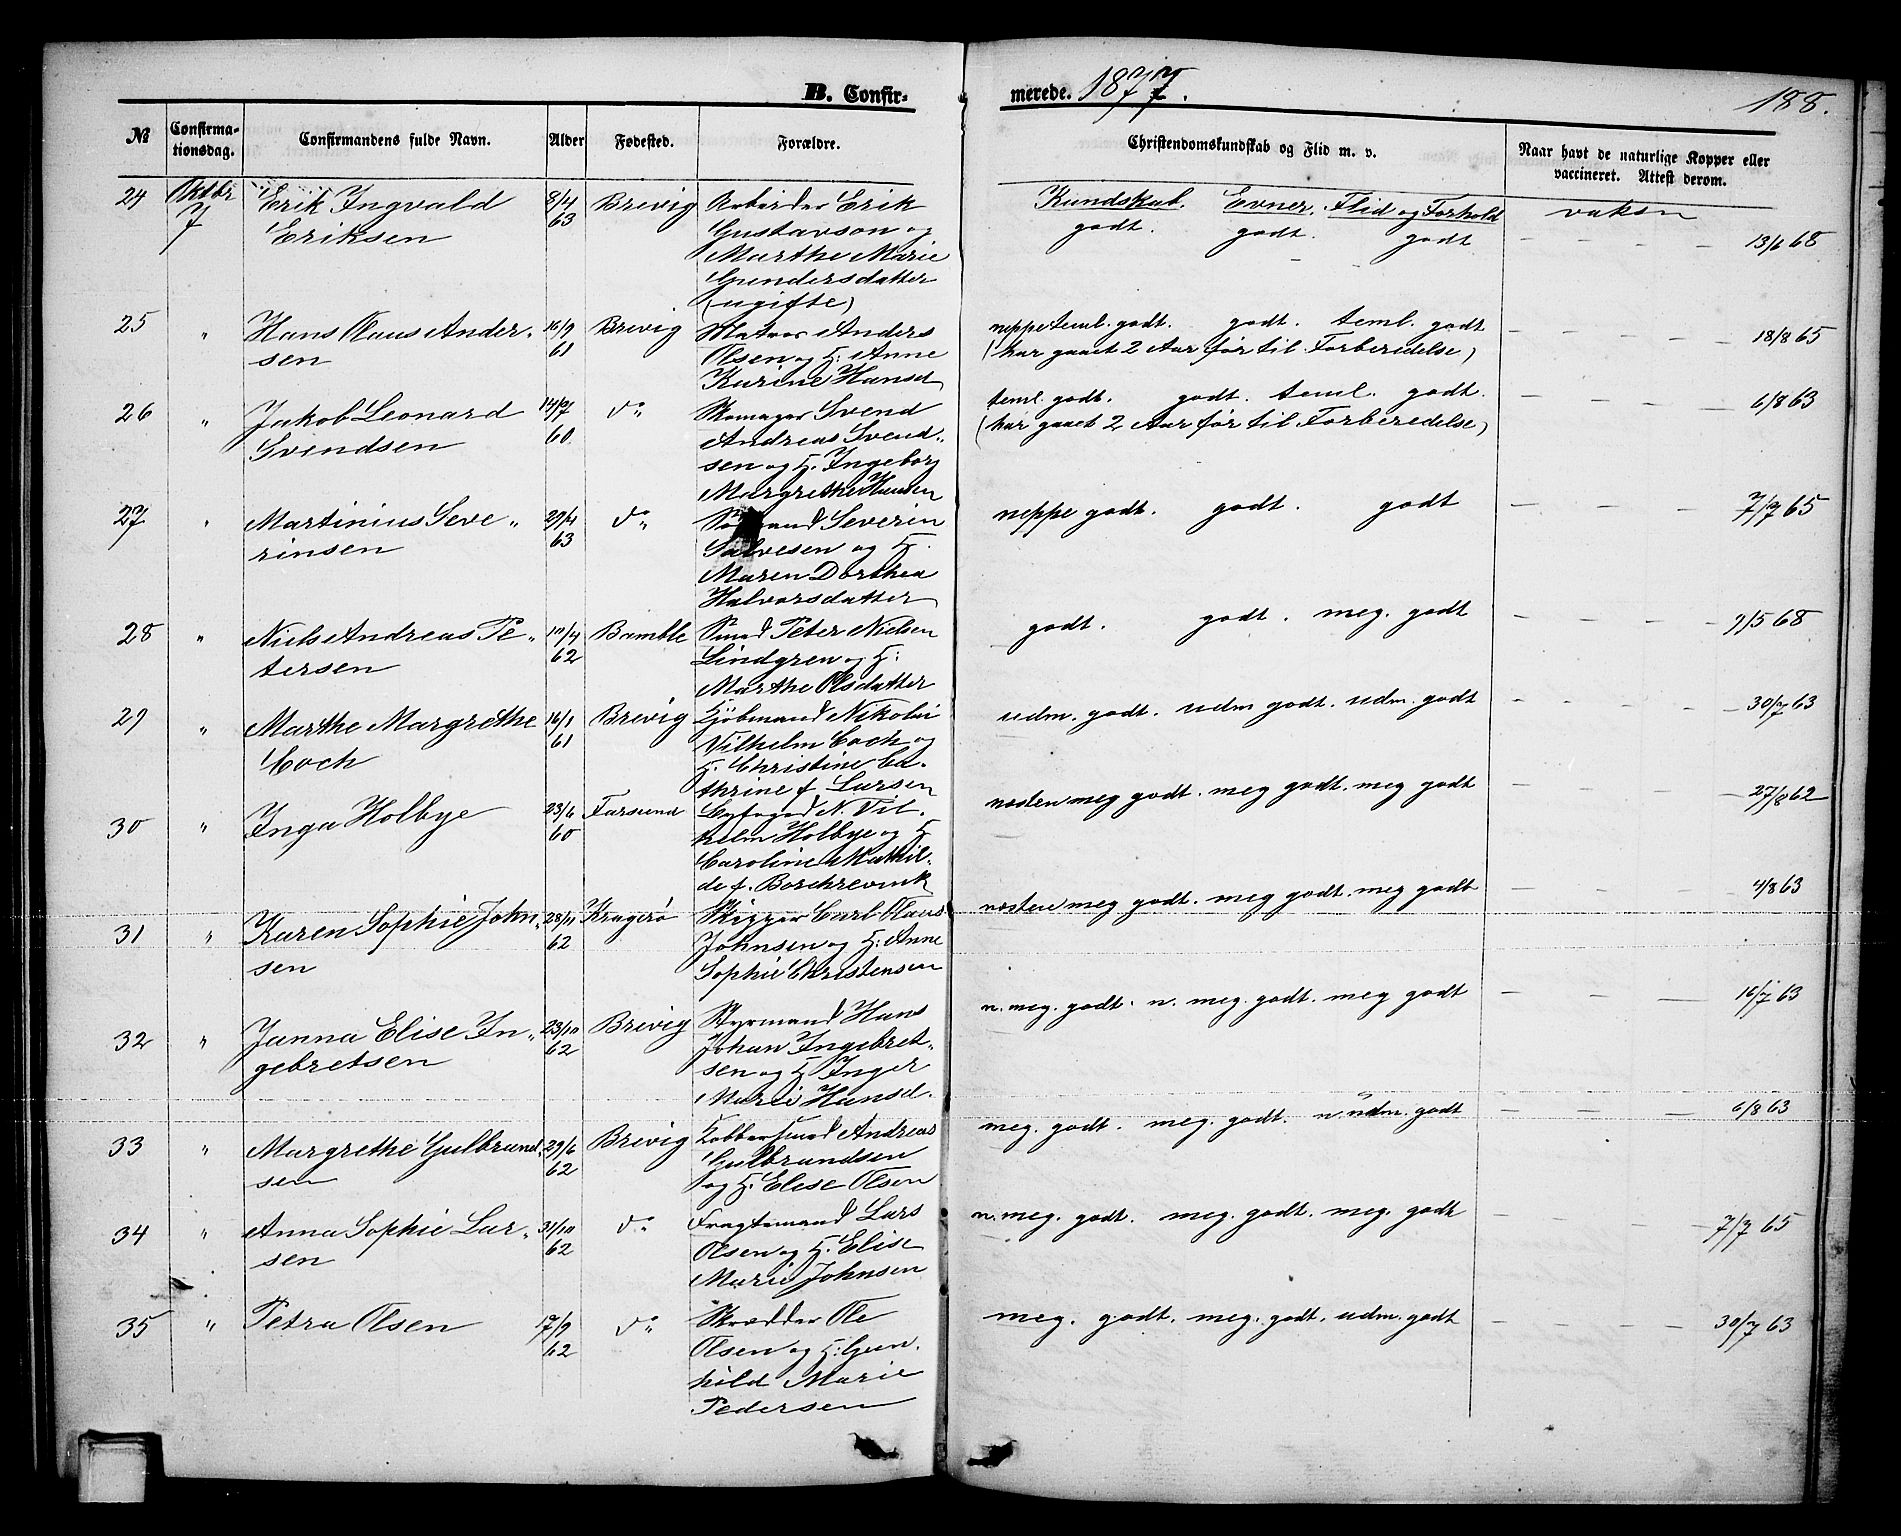 B. Confir-
merede. 1877.
188.
№
Confirma-
tionsdag.
Confirmandens fulde Navn.
Alder
Fødested.
Forældre.
Christendomskundskab og Flid m. v.
Naar havt de naturlige Kopper eller
vaccineret. Attest derom.
24 Oktbr 7 Erik Ingvald
Eriksen
8/4 63 Brevig
Arbeider Erik
Gustavson og
Marthe Marie
Gundersdatter
(ugifte)
Kundskab. Evner. Flid og Forhold
godt. godt. godt
vaksn
13/6 68
25 " Hans Olaus Ander-
sen
16/9 61 Brevig
Matros Anders
Olsen og H: Anne
Karine Hansd
neppe teml. godt. godt. teml. godt
(har gaaet 2 Aar før til Forberedelse)
18/8 65
26 " Jakob Leonard
Svendsen
14/7 60 do
Skomager Svend
Andreas Svend-
sen og H. Ingeborg
Margrethe Hansen
teml. godt. godt. teml. godt.
(har gaaet 2 Aar før til Forberedelse)
6/8 63
27 " Martinius Seve-
rinsen
29/4 63 do
Sømand Severin
Salvesen og H.
Maren Dorthea
Halvorsdatter
neppe godt. godt. godt
7/7 65
28 " Niels Andreas Pe-
tersen
10/4 62 Bamble
Smed Peter Nielsen
Lindgren og H:
Marthe Olsdatter
godt. godt. meg. godt
9/5 68
29 " Marthe Margrethe
Coch
16/1 61 Brevig
Kjøbmand Nikolai
Vilhelm Coch og
H. Christine Ca-
thrine f. Larsen
udm. godt. udm godt. udm. godt
30/7 63
30 " Inga Holbye
23/6 60 Farsund
Byfoged N. Vil-
helm Holbye og H
Caroline Mathil-
de f. Borchrevink
næsten meg godt. meg godt. meg godt
27/8 62
31 " Karen Sophie John-
sen
28/11 62 Kragerø
Skipper Carl Olaus
Johnsen og H: Anne
Sophie Christensen
næsten meg godt. meg godt. meg godt
4/8 63
32 " Janna Elise In-
gebretsen
23/10 62 Brevig
Styrmand Hans
Johan Ingebret-
sen og H Inger
Marie Hansd.
n. meg. godt. n. meg. godt. meg godt
16/7 63
33 " Margrethe Gulbrand-
sen
29/6 62 Brevig
Kobbersmed Andreas
Gulbrandsen
og H. Elise Olsen
meg. godt. meg. godt. n udm. godt
6/8 63
34 " Anna Sophie Lar-
sen
31/10 62 do
Fragtemand Lars
Olsen og H. Elise
Marie Johnsen
n. meg. godt. meg. godt. meg. godt
7/7 65
35 " Petra Olsen
17/9 62 do
Skrædder Ole
Olsen og H: Gun-
hild Marie
Pedersen
meg. godt. meg. godt. udm. godt
30/7 63